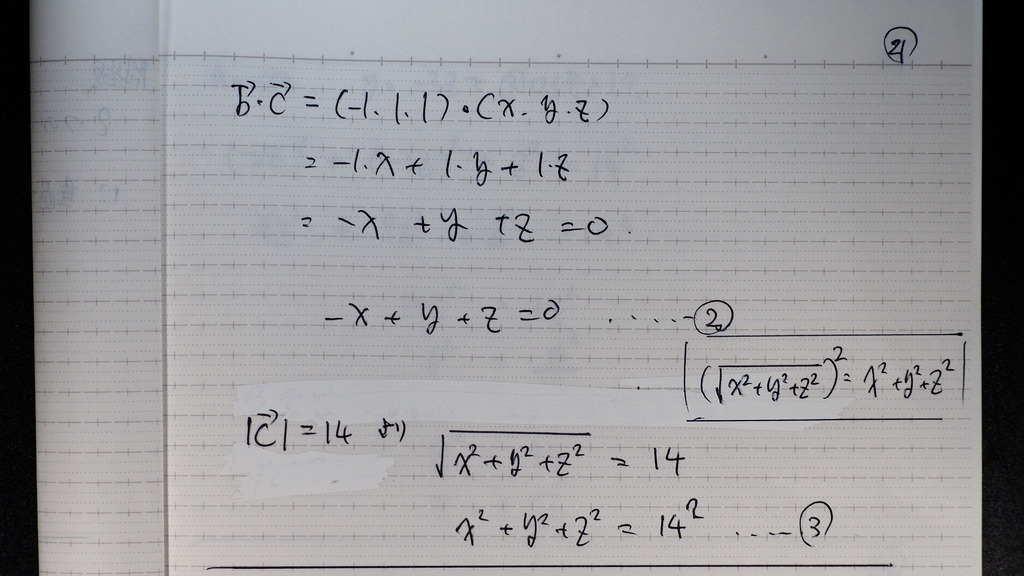 ④
b⃗・c⃗ = (-1. 1. 1)・(x. y. z)
= -1.x + 1.y + 1.z
= -x + y + z = 0 .
-x + y + z = 0 ......②
(√x²+y²+z²)² = x²+y²+z²
|c⃗| = 14 より √x²+y²+z² = 14
x² + y² + z² = 14² ....③